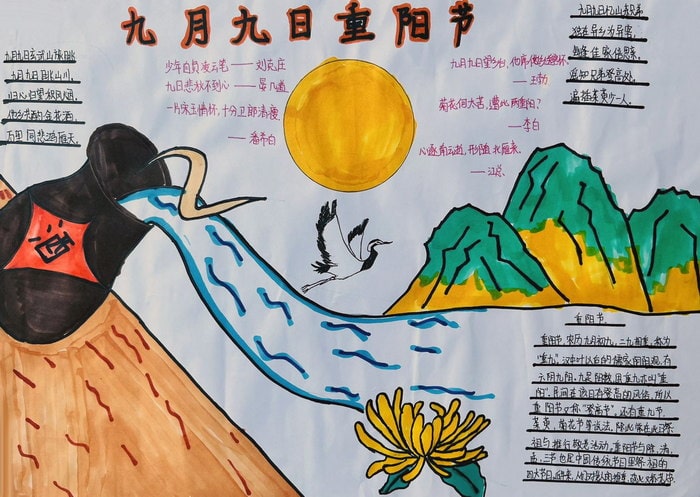 九月九日重阳节
九月九日玄武山旅眺
九月九日眺山川
归心归望积风烟
他乡共酌金花酒
万里同悲鸿雁天
少年自负凌云笔——刘克庄
九日悲秋不到心——晏几道
一片宋玉情怀，十分卫郎清瘦
——潘希白
九月九日望乡台，他席他乡送客杯。
——王勃
菊花何太苦，遭此两重阳？
——李白
心逐南云逝，形随北雁来。
——江总
九月九日忆山东兄弟
独在异乡为异客，
每逢佳节倍思亲。
遥知兄弟登高处，
遍插茱萸少一人。
酒
重阳节
重阳节，农历九月初九，二九相重，称为
"重九"，汉中叶以后的儒家阴阳观，有
六阴九阳，九是阳数，固重九亦叫"重
阳"。民间在该日有登高的风俗，所以
重阳节又称"登高节"，还有重九节、
茱萸、菊花节等说法，除此
祖与推行敬老活动，重阳节与除、清、
盂，三节也是中国传统节日里祭祖的
四大节日